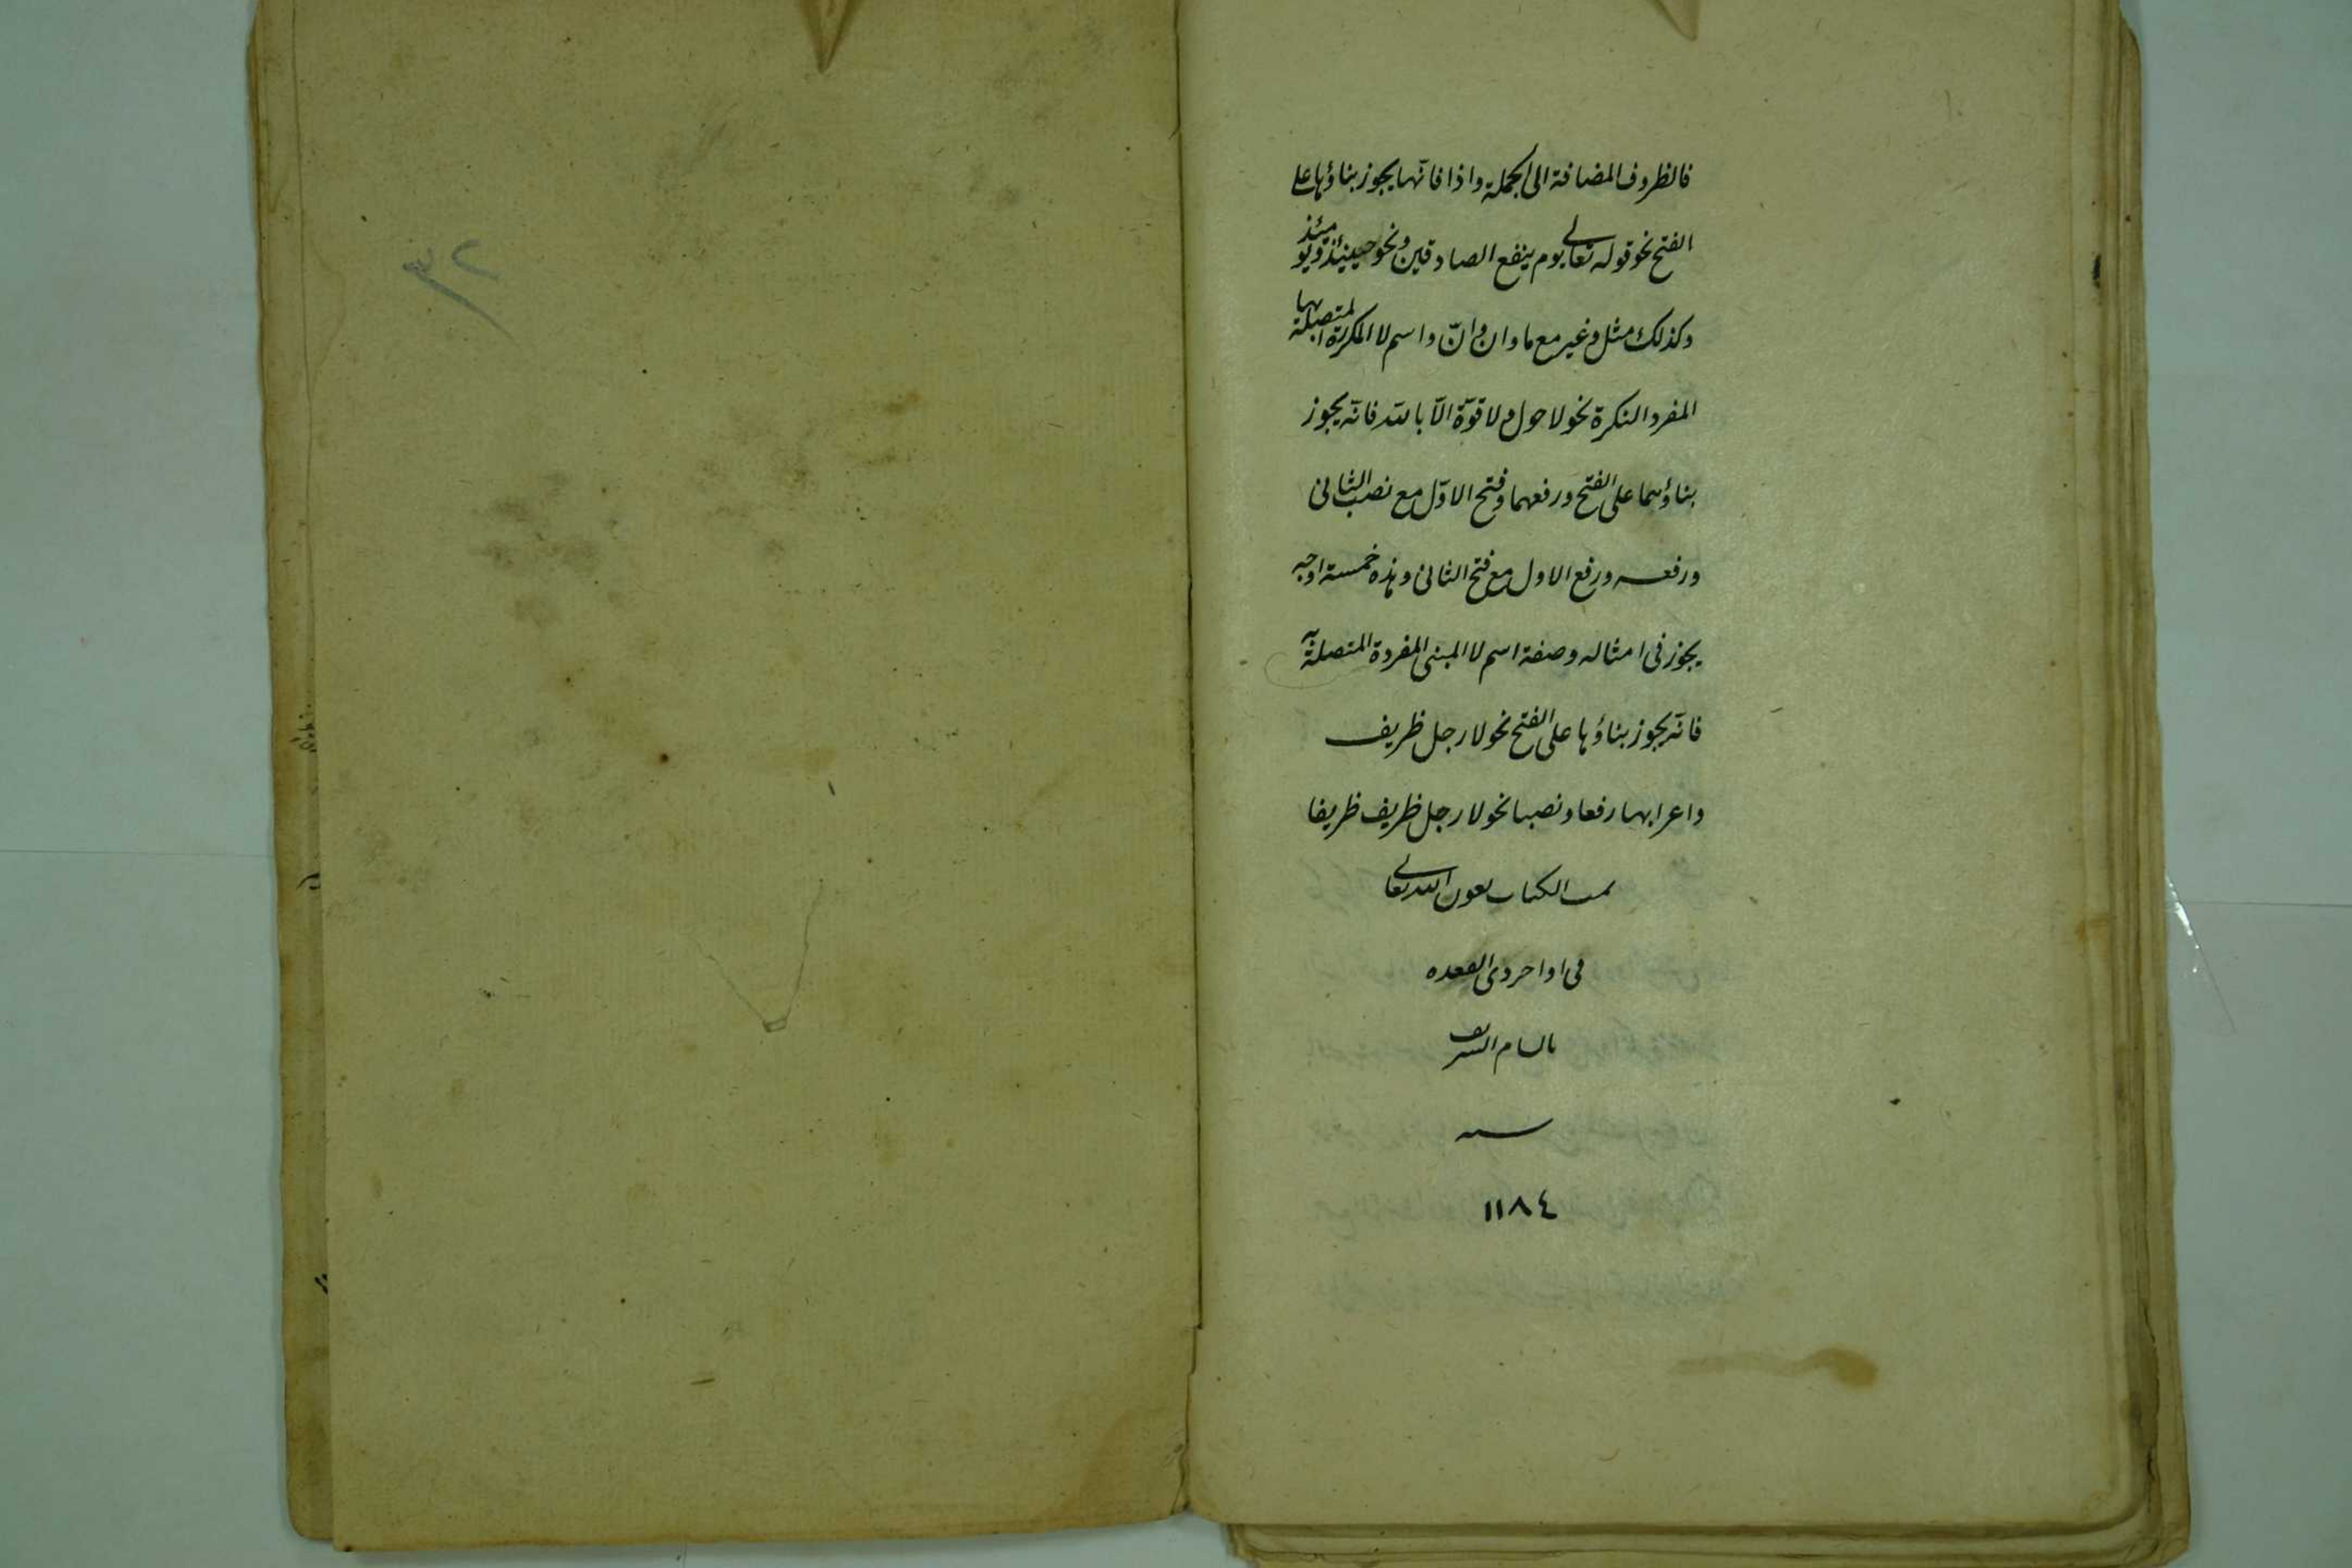 فالظروف المضافة الى الجملة واذا فانّها يجوز بناؤها على
الفتح نحو قوله تعالى يوم ينفع الصادقين ونحو حينئذ ويومئذ
وكذلك مثل وغير مع ما وان وانّ واسم لا المكررة المتصلة بها
المفرد النكرة نحو لا حول ولا قوّة الّا بالله فانّه يجوز
بناؤهما على الفتح ورفعهما وفتح الاوّل مع نصب الثانى
ورفعه ورفع الاول مع فتح الثانى وهذه خمسة اوجه
يجوز فى امثاله وصفة اسم لا المبنى المفردة المتصلة به
فانّه يجوز بناؤها على الفتح نحو لا رجل ظريف
واعرابها رفعا ونصبا نحو لا رجل ظريف ظريفا
تمت الكتاب بعون الله تعالى
فى اواخر ذى القعده
بالشام الشريف
سنه
١١٨٤
٣٢